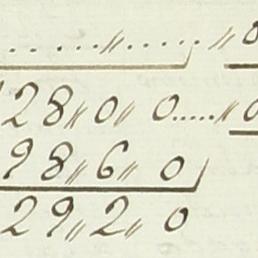 ......〃......〃0
28〃0〃0.....〃0
98〃6〃0
29〃2〃0